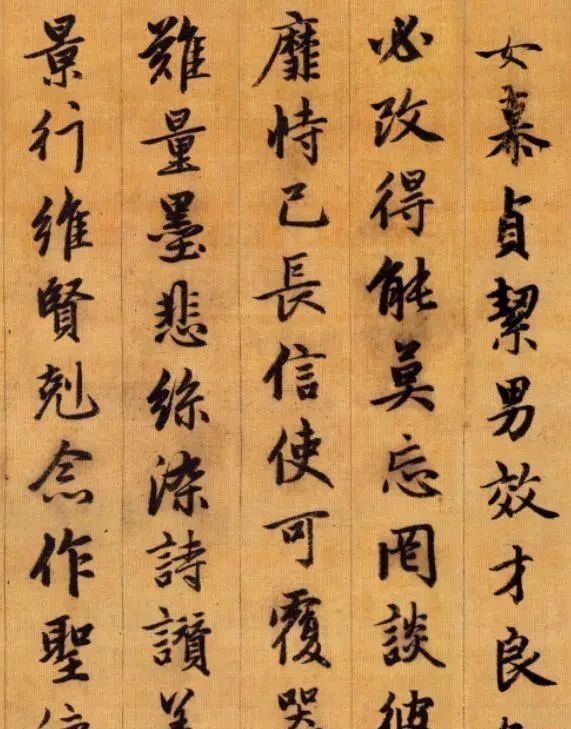 女慕貞絜男效才良
必改得能莫忘罔談彼
靡恃己長信使可覆器
難量墨悲絲染詩讚羔
景行維賢剋念作聖